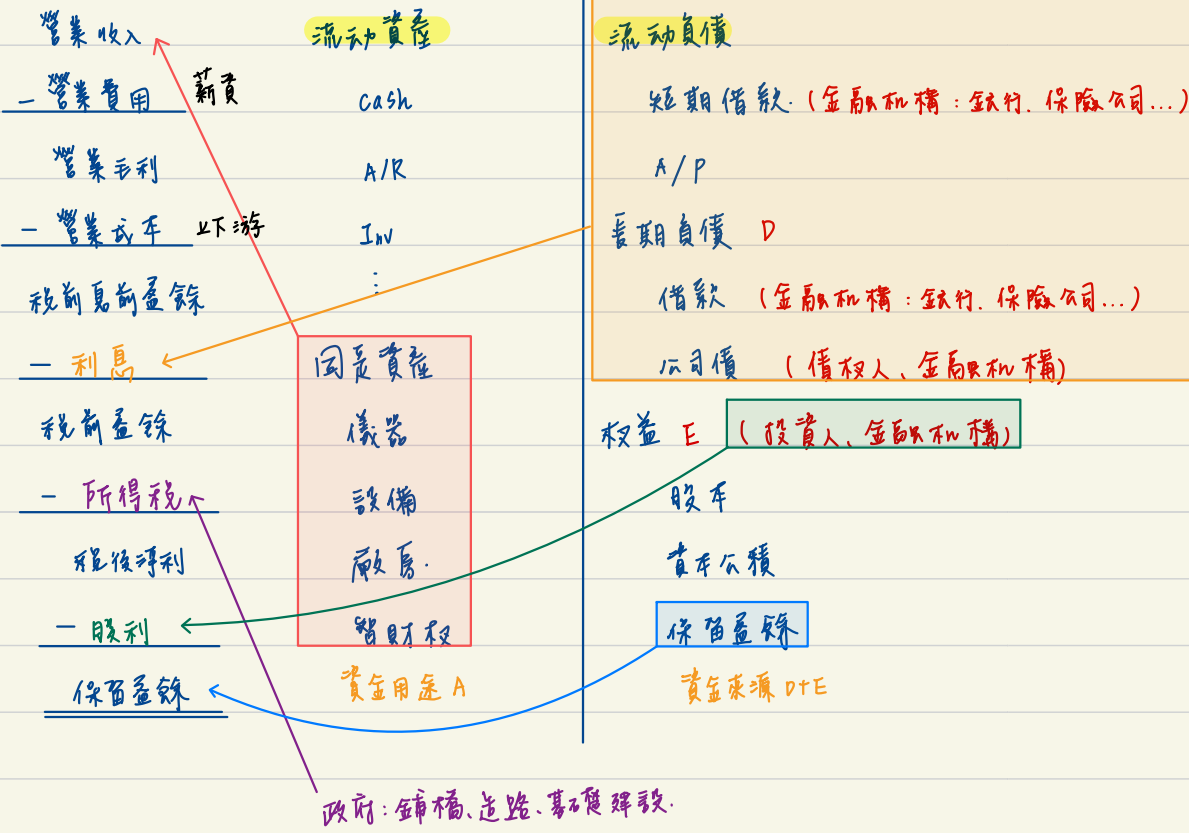 營業收入
- 營業費用 薪資
營業毛利
- 營業成本 上下游
稅前息前盈餘
- 利息
稅前盈餘
- 所得稅
稅後淨利
- 股利
保留盈餘
流动資產
cash
A/R
Inv
⋮
固定資產
儀器
設備
廠房.
智財权
資金用途 A
流动負債
短期借款. (金融机構:銀行.保險公司...)
A/P
長期負債 D
借款 (金融机構:銀行.保險公司...)
公司債 (債权人、金融机構)
权益 E (投資人、金融机構)
股本
資本公積
保留盈餘
資金來源 D+E
政府:鋪橋、造路、基礎建設.